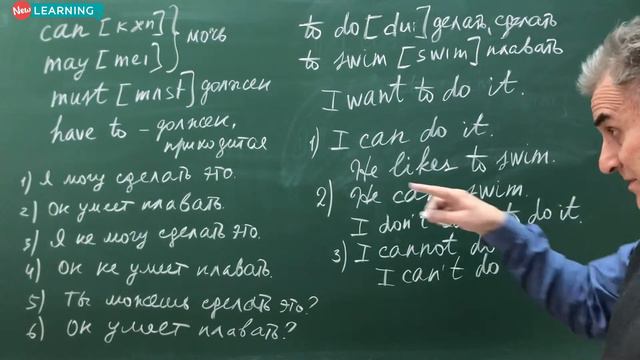 New LEARNING
can [kæn]
may [mei]
} мочь
must [mʌst] должен
have to - должен,
приходится
1) Я могу сделать это.
2) Он умеет плавать.
3) Я не могу сделать это.
4) Он не умеет плавать.
5) Ты можешь сделать это?
6) Он умеет плавать?
to do [du:] делать, сделать
to swim [swim] плавать
I want to do it.
1) I can do it.
He likes to swim.
2) He can swim.
I don't to do it.
3) I cannot do
I can't do